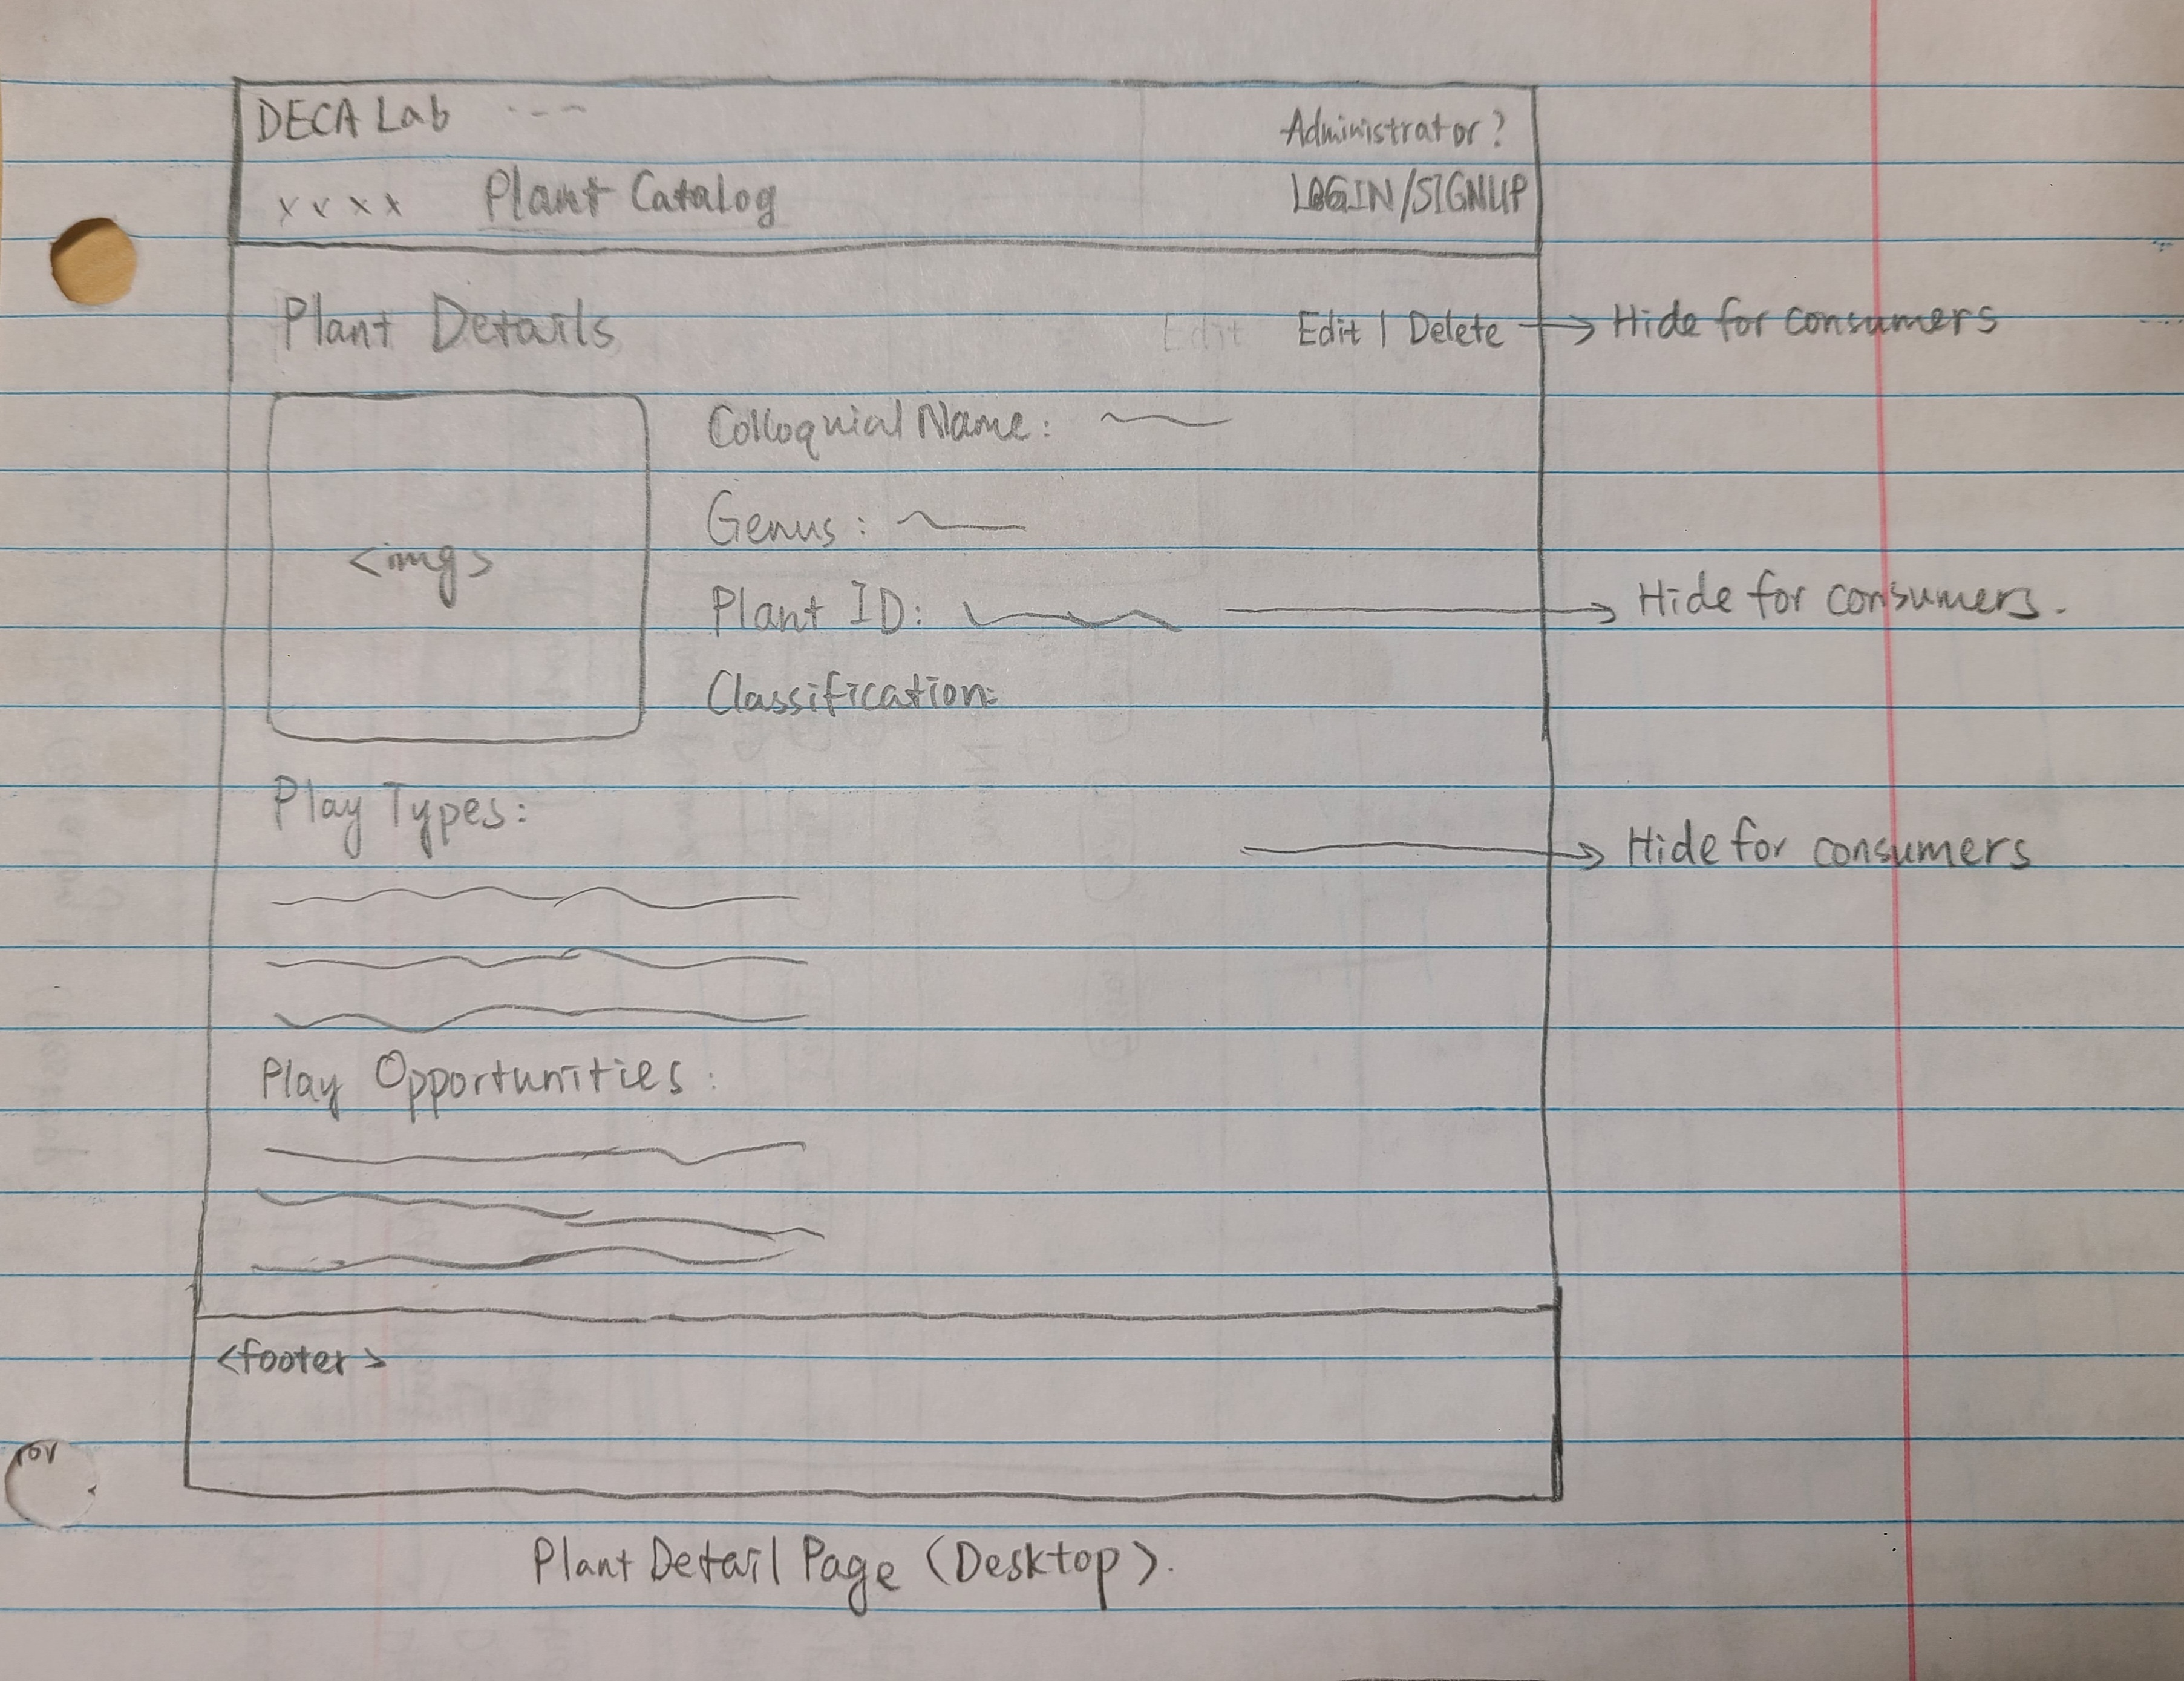 DECA Lab ---
Administrator?
xvxx Plant Catalog
LOGIN/SIGNUP
Plant Details
Edit
Edit | Delete → Hide for consumers
Colloquial Name:
Genus:
<img>
Plant ID: → Hide for consumers.
Classification:
Play Types:
→ Hide for consumers
Play Opportunities:
<footer>
Plant Detail Page (Desktop).